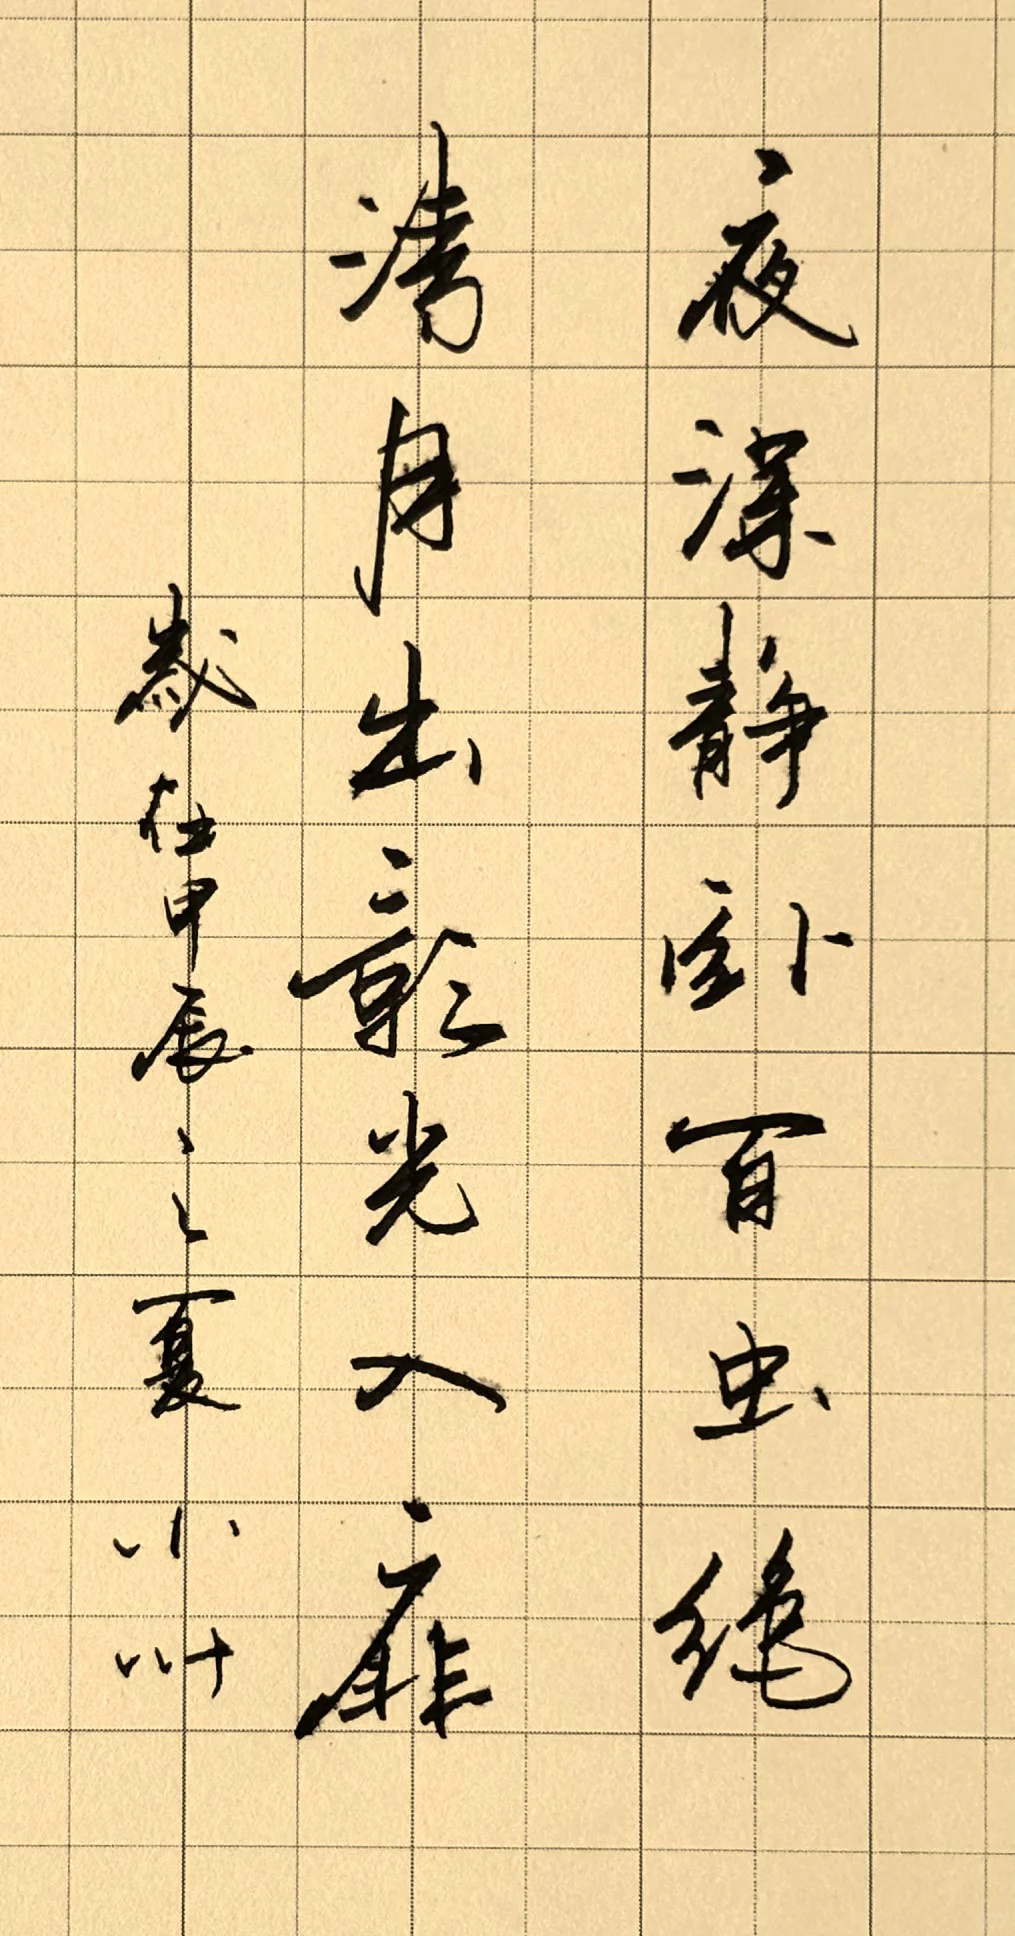 夜深静卧百虫绝
清月出嶺光入扉
歲在甲辰之夏 小叶